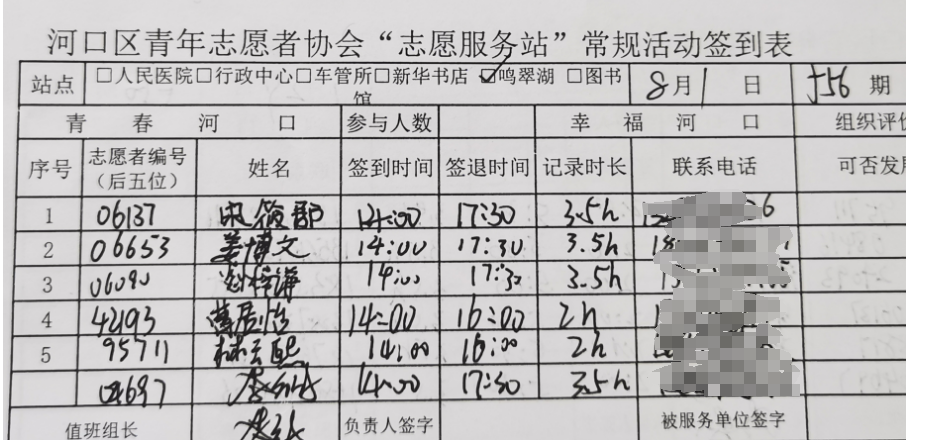 河口区青年志愿者协会“志愿服务站”常规活动签到表
站点 □人民医院□行政中心□车管所□新华书店 ☑鸣翠湖 □图书馆 8月1日 156期
青春河口 参与人数 幸福河口 组织评价
序号 志愿者编号（后五位） 姓名 签到时间 签退时间 记录时长 联系电话 可否发
1 06137 14:00 17:30 3.5h
2 06653 姜博文 14:00 17:30 3.5h
3 06090 14:00 17:30 3.5h
4 42193 14:00 16:00 2h
5 95711 林云熙 14:00 16:00 2h
04697 14:00 17:30 3.5h
值班组长 负责人签字 被服务单位签字